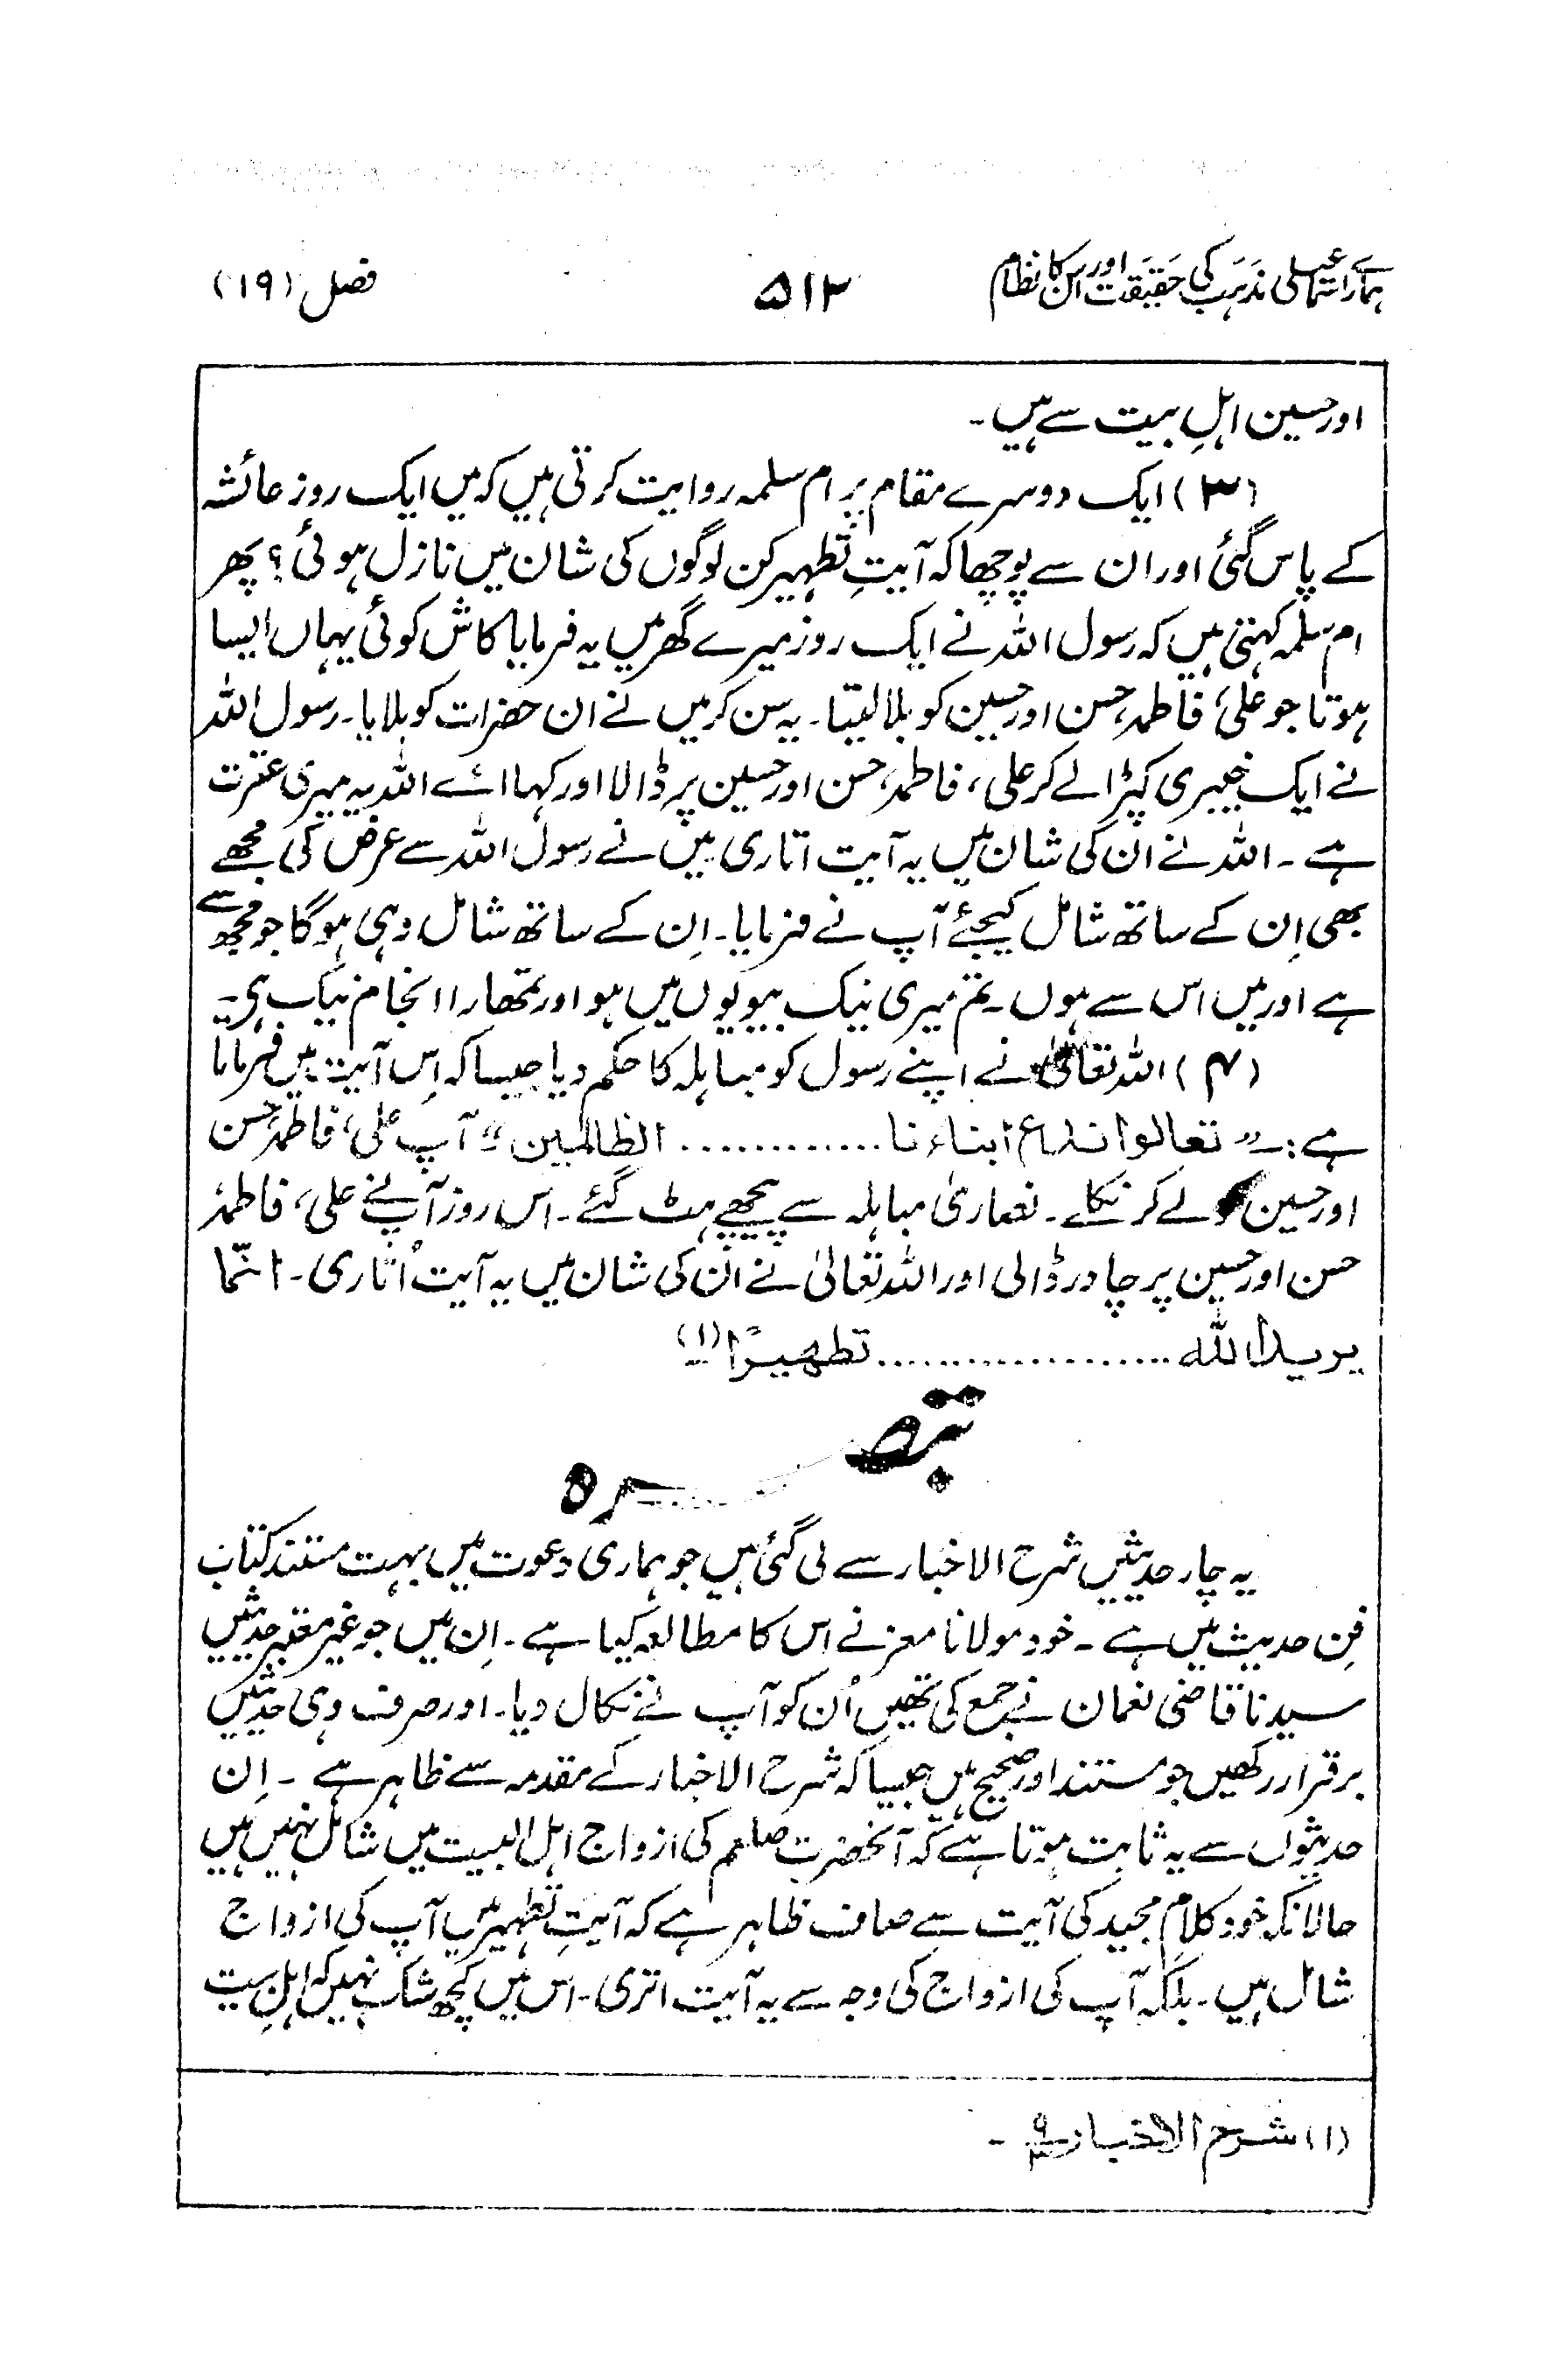 ہمارے اسماعیلی مذہب کی حقیقت اور اس کا نظام
۵۱۲
فصل (۱۹)
اور حسین اہلِ بیت سے ہیں۔
(۳) ایک دوسرے مقام پر ام سلمہ روایت کرتی ہیں کہ میں ایک روز عائشہ
کے پاس گئی اور ان سے پوچھا کہ آیتِ تطہیر کن لوگوں کی شان میں نازل ہوئی؟ پھر
ام سلمہ کہتی ہیں کہ رسول اللہ نے ایک روز میرے گھر میں یہ فرمایا کاش کوئی یہاں ایسا
ہوتا جو علی، فاطمہ، حسن اور حسین کو بلا لیتا۔ یہ سن کر میں نے ان حضرات کو بلایا۔ رسول اللہ
نے ایک خیبری کپڑا لے کر علی، فاطمہ، حسن اور حسین پر ڈالا اور کہا اے اللہ یہ میری عترت
ہے۔ اللہ نے ان کی شان میں یہ آیت اتاری میں نے رسول اللہ سے عرض کی مجھے
بھی اِن کے ساتھ شامل کیجئے آپ نے فرمایا۔ اِن کے ساتھ شامل وہی ہوگا جو مجھ سے
ہے اور میں اس سے ہوں۔ تم میری نیک بیویوں میں ہو اور تمھارا انجام نیک ہی۔
(۴) اللہ تعالیٰ نے اپنے رسول کو مباہلہ کا حکم دیا جیسا کہ اِس آیت میں فرمایا
ہے:۔ ”تعالوا ندع ابناءنا ............ الظالمین“ آپ علی، فاطمہ، حسن
اور حسین کو لے کر نکلے۔ نصاریٰ مباہلہ سے پیچھے ہٹ گئے۔ اس روز آپ نے علی، فاطمہ
حسن اور حسین پر چادر ڈالی اور اللہ تعالیٰ نے ان کی شان میں یہ آیت اُتاری۔ انّما
یرید اللہ .................... تطھیرًا (۱)
تبصرہ
یہ چار حدیثیں شرح الاخبار سے لی گئی ہیں جو ہماری دعوت میں بہت مستند کتاب
فنِ حدیث میں ہے۔ خود مولانا معز نے اس کا مطالعہ کیا ہے۔ اِن میں جو غیر معتبر حدیثیں
سیدنا قاضی نعمان نے جمع کی تھیں اُن کو آپ نے نکال دیا۔ اور صرف وہی حدیثیں
برقرار رکھیں جو مستند اور صحیح ہیں جیسا کہ شرح الاخبار کے مقدمہ سے ظاہر ہے۔ اِن
حدیثوں سے یہ ثابت ہوتا ہے کہ آنحضرت صلعم کی ازواج اہل البیت میں شامل نہیں ہیں
حالانکہ خود کلام مجید کی آیت سے صاف ظاہر ہے کہ آیتِ تطہیر میں آپ کی ازواج
شامل ہیں۔ بلکہ آپ کی ازواج کی وجہ سے یہ آیت اتری۔ اس میں کچھ شک نہیں کہ اہلِ بیت
(۱) شرح الاخبار ۹ ۔